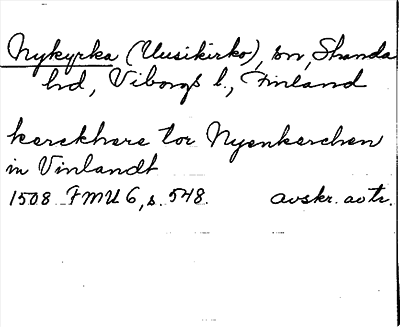 Nykyrka (Uusikirko), sn, Stranda
hd, Viborgs l., Finland
kerckhere tor Nyenkerchen
in Vinlandt
1508 FMU 6, s. 548. avskr. avtr.